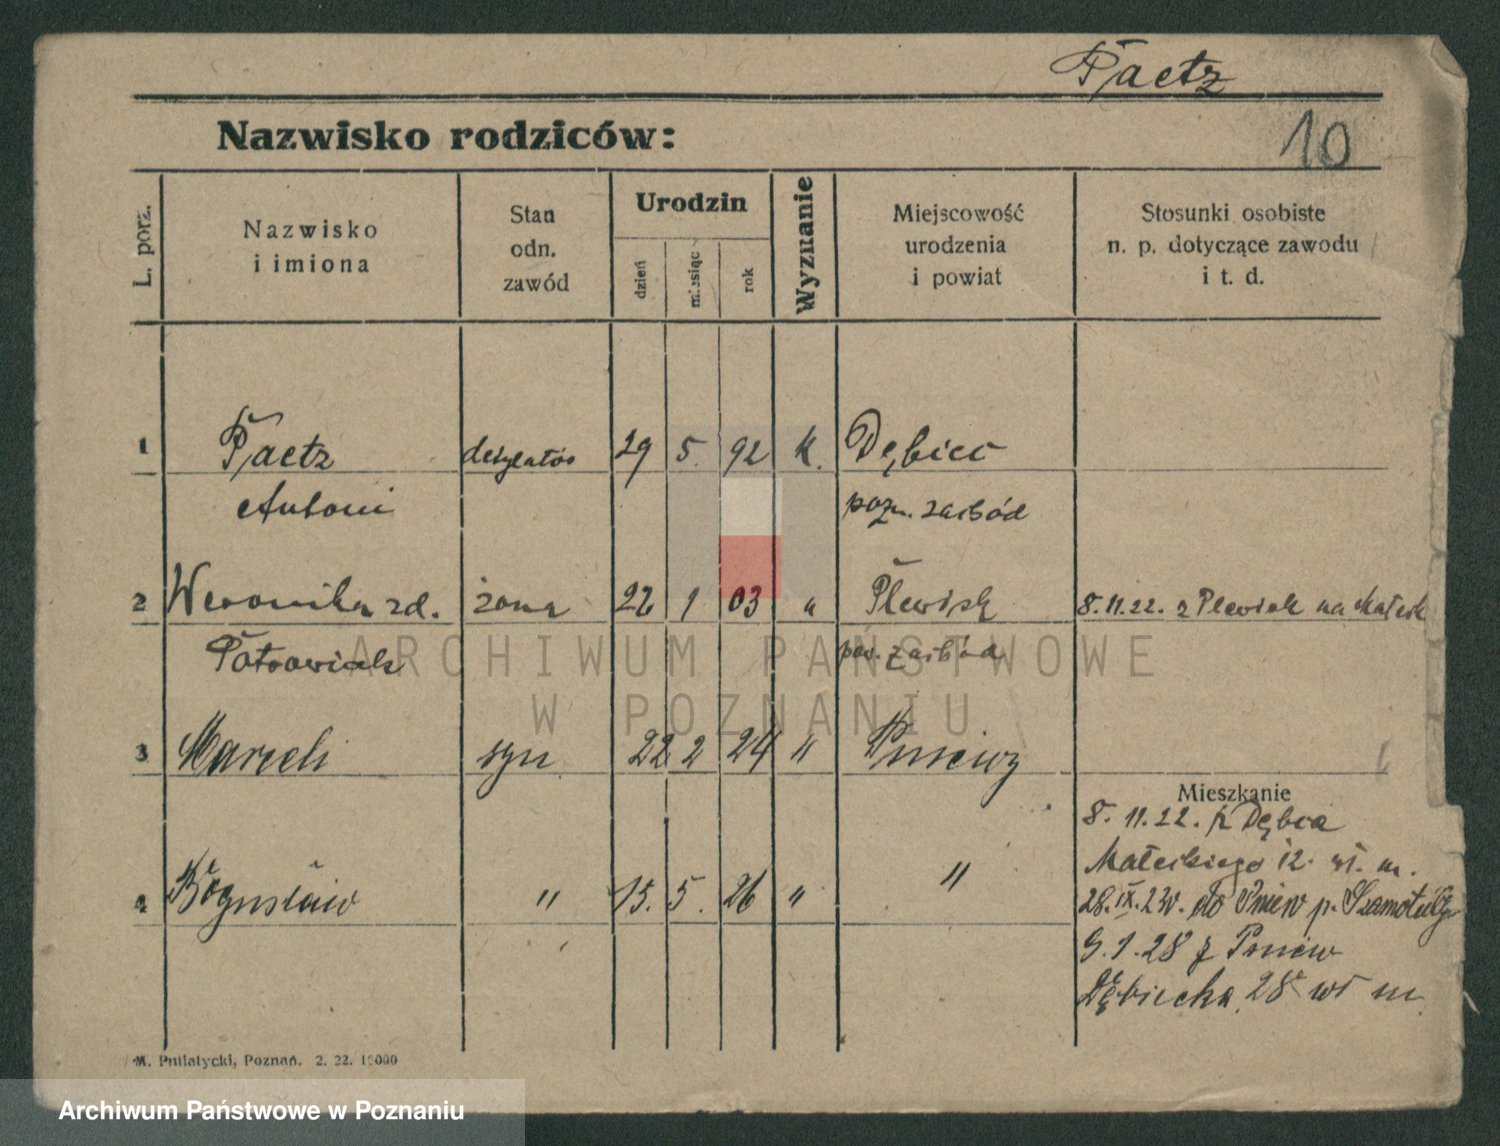 Paetz
Nazwisko rodziców:
10
L. porz.
Nazwisko
i imiona
Stan
odn.
zawód
Urodzin
dzień
miesiąc
rok
Wyznanie
Miejscowość
urodzenia
i powiat
Stosunki osobiste
n. p. dotyczące zawodu
i t. d.
1 Paetz 29 5. 92 k. Dębiec
Antoni pozn. zachód
2 Weronika zd. żona 22 1 03 " Plewisk 8.11.22. z Plewisk na
Potrawiak pow. zachód
3 Marceli syn 22 2 24 " Pniewy
Mieszkanie
8. 11. 22. z Dębca
Małeckiego 12. wł. m.
4 Bogusław " 15. 5. 26 " "
28. IX. 23 w. do Pniew p. Szamotuły
9. 1. 28 z Pniew
Dębiecka 28 wł m.
M. Putiatycki, Poznań. 2. 22. 10000
ARCHIWUM PAŃSTWOWE
W POZNANIU
Archiwum Państwowe w Poznaniu